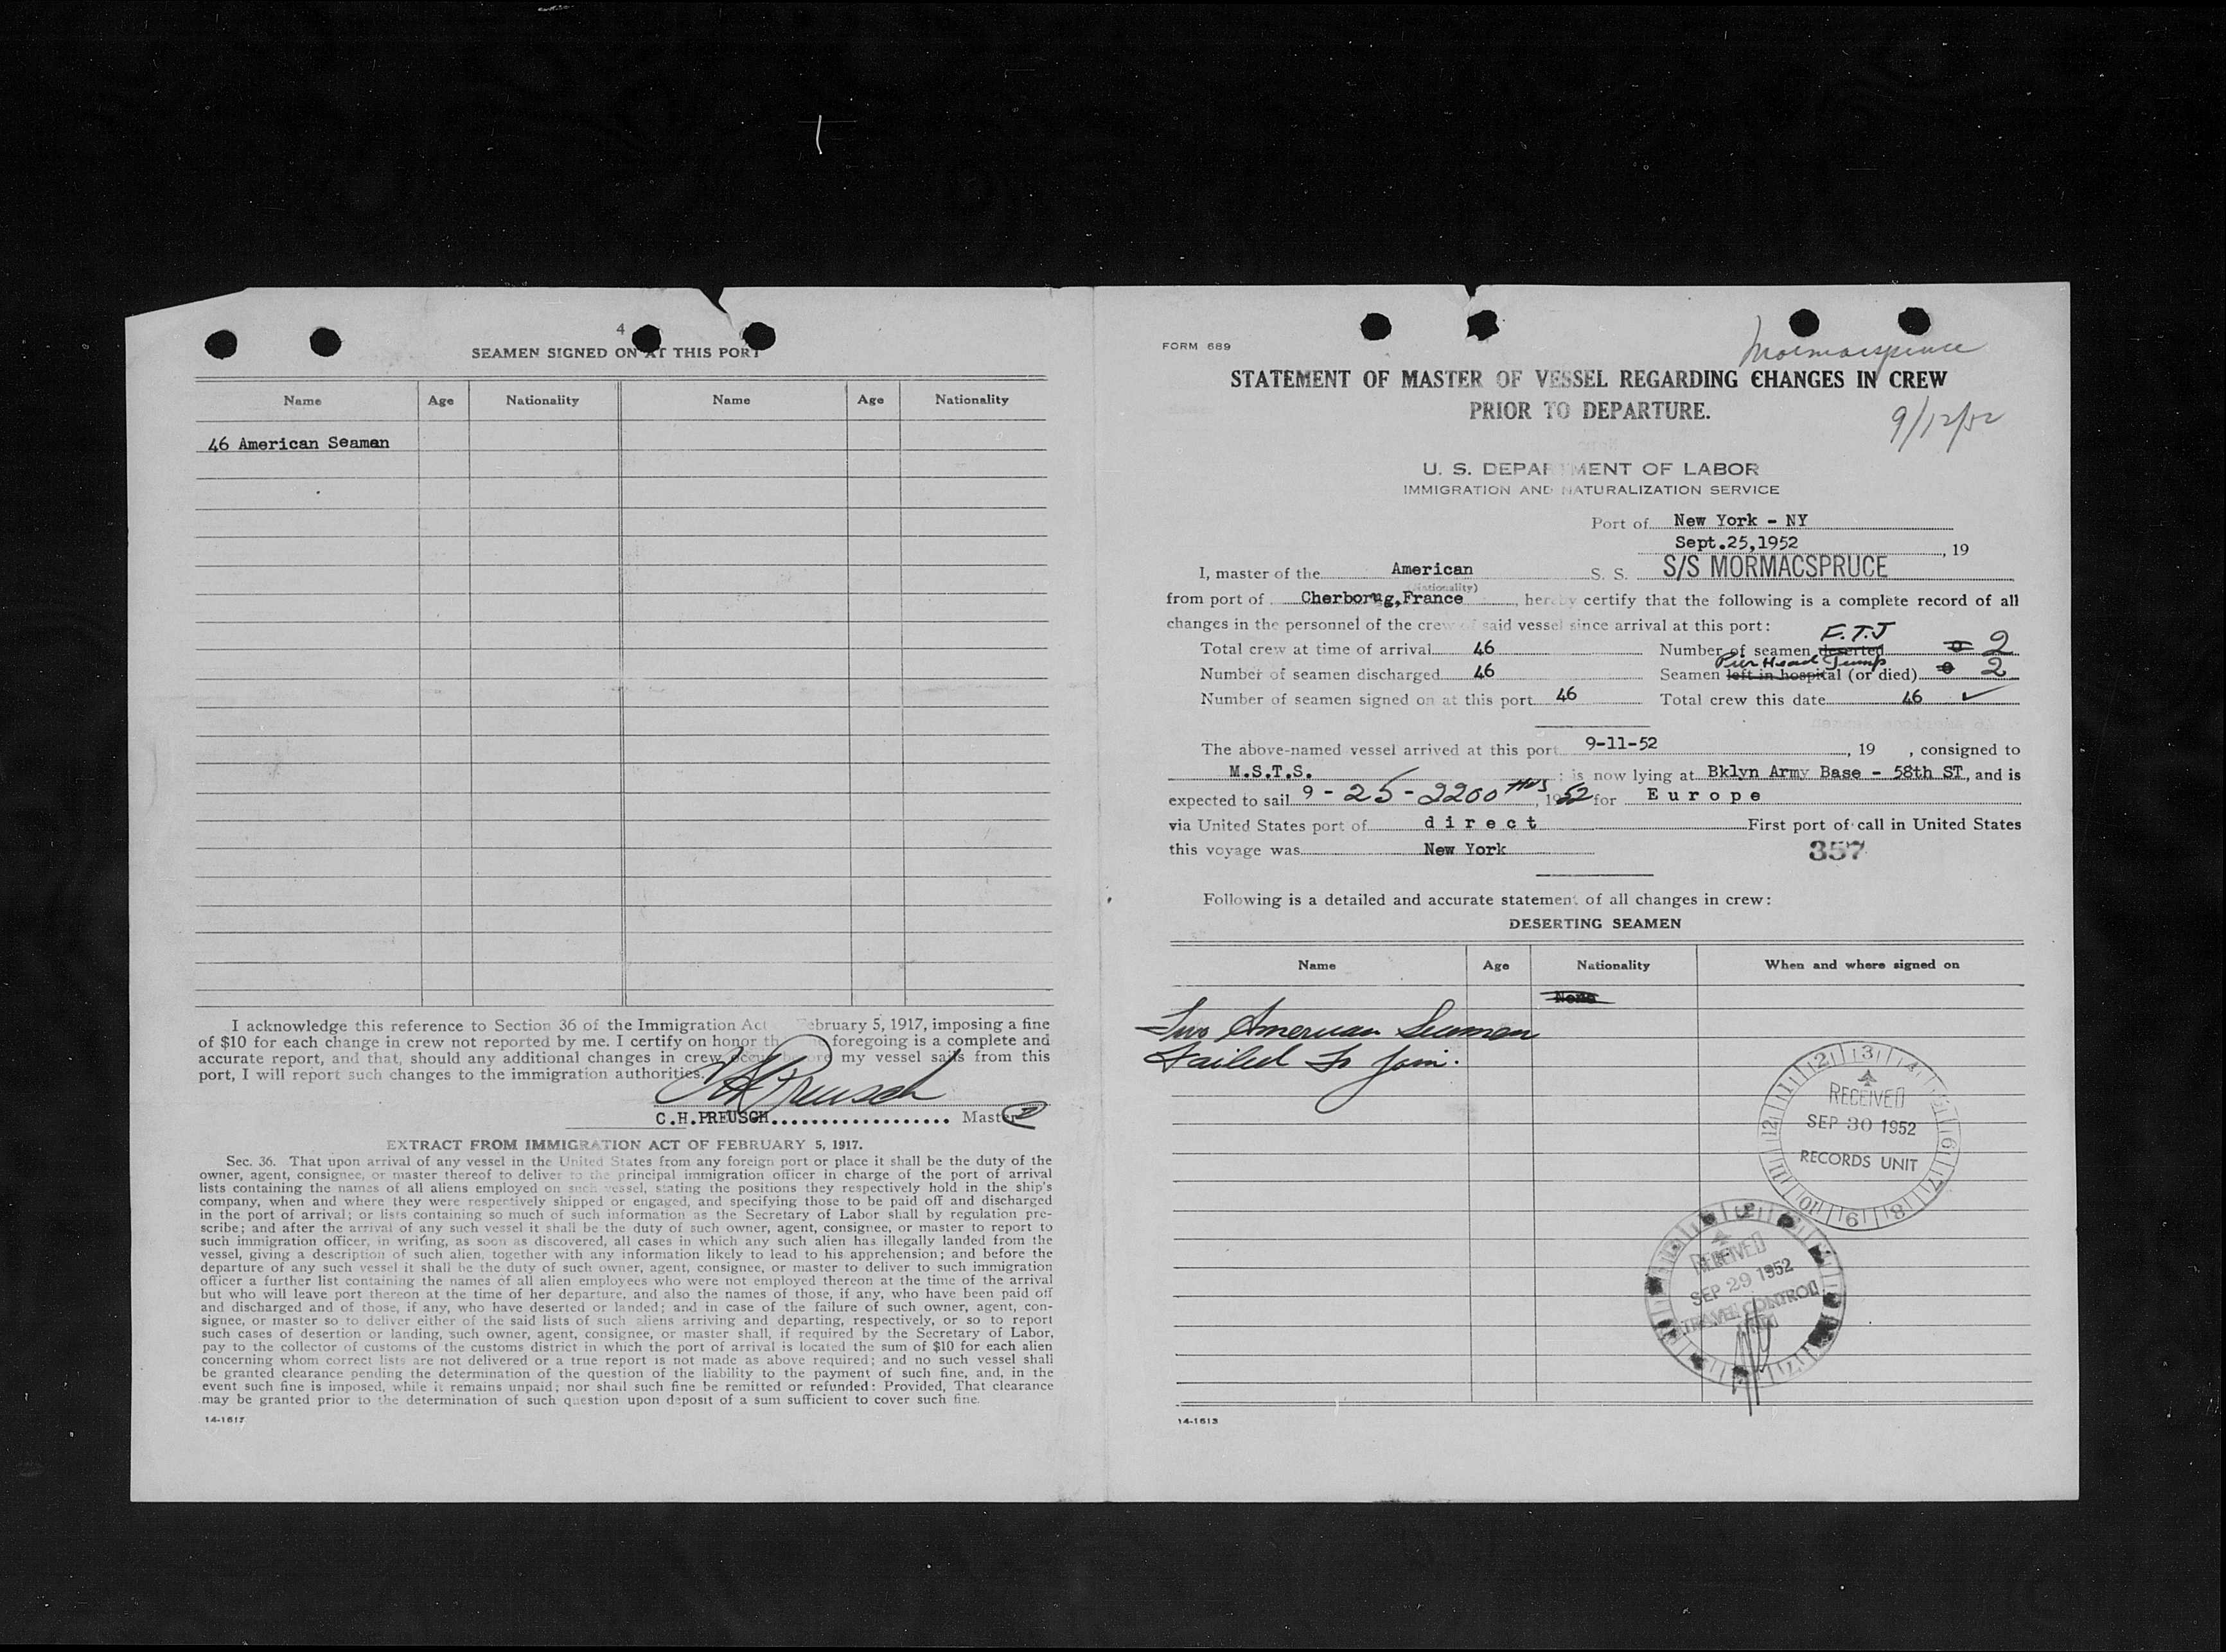 4
SEAMEN SIGNED ON AT THIS PORT
Name Age Nationality Name Age Nationality
46 American Seaman
I acknowledge this reference to Section 36 of the Immigration Act February 5, 1917, imposing a fine
of $10 for each change in crew not reported by me. I certify on honor th foregoing is a complete and
accurate report, and that, should any additional changes in crew occur before my vessel sails from this
port, I will report such changes to the immigration authorities.
C H Preusch
C.H.PREUSCH................... Master
EXTRACT FROM IMMIGRATION ACT OF FEBRUARY 5, 1917.
Sec. 36. That upon arrival of any vessel in the United States from any foreign port or place it shall be the duty of the
owner, agent, consignee, or master thereof to deliver to the principal immigration officer in charge of the port of arrival
lists containing the names of all aliens employed on such vessel, stating the positions they respectively hold in the ship's
company, when and where they were respectively shipped or engaged, and specifying those to be paid off and discharged
in the port of arrival; or lists containing so much of such information as the Secretary of Labor shall by regulation pre-
scribe; and after the arrival of any such vessel it shall be the duty of such owner, agent, consignee, or master to report to
such immigration officer, in writing, as soon as discovered, all cases in which any such alien has illegally landed from the
vessel, giving a description of such alien, together with any information likely to lead to his apprehension; and before the
departure of any such vessel it shall be the duty of such owner, agent, consignee, or master to deliver to such immigration
officer a further list containing the names of all alien employees who were not employed thereon at the time of the arrival
but who will leave port thereon at the time of her departure, and also the names of those, if any, who have been paid off
and discharged and of those, if any, who have deserted or landed; and in case of the failure of such owner, agent, con-
signee, or master so to deliver either of the said lists of such aliens arriving and departing, respectively, or so to report
such cases of desertion or landing, such owner, agent, consignee, or master shall, if required by the Secretary of Labor,
pay to the collector of customs of the customs district in which the port of arrival is located the sum of $10 for each alien
concerning whom correct lists are not delivered or a true report is not made as above required; and no such vessel shall
be granted clearance pending the determination of the question of the liability to the payment of such fine, and, in the
event such fine is imposed, while it remains unpaid; nor shall such fine be remitted or refunded: Provided, That clearance
may be granted prior to the determination of such question upon deposit of a sum sufficient to cover such fine.
14-1617
FORM 689
Mormacspruce
STATEMENT OF MASTER OF VESSEL REGARDING CHANGES IN CREW
PRIOR TO DEPARTURE.
9/12/52
U. S. DEPARTMENT OF LABOR
IMMIGRATION AND NATURALIZATION SERVICE
Port of New York - NY
Sept.25,1952 , 19
I, master of the American S. S. S/S MORMACSPRUCE
(Nationality)
from port of Cherborug,France , hereby certify that the following is a complete record of all
changes in the personnel of the crew of said vessel since arrival at this port:
F.T.J
Total crew at time of arrival 46 Number of seamen deserted 0 2
Pier Head Jump
Number of seamen discharged 46 Seamen left in hospital (or died) 0 2
Number of seamen signed on at this port 46 Total crew this date 46 ✓
The above-named vessel arrived at this port 9-11-52 , 19 , consigned to
M.S.T.S. ; is now lying at Bklyn Army Base - 58th ST, and is
expected to sail 9 - 25 - 2200 HRS, 1952 for Europe
via United States port of direct First port of call in United States
this voyage was New York
357
Following is a detailed and accurate statement of all changes in crew:
DESERTING SEAMEN
Name Age Nationality When and where signed on
None
Two American Seaman
Failed To Join.
RECEIVED
SEP 30 1952
RECORDS UNIT
RECEIVED
SEP 29 1952
TRAVEL CONTROL
14-1613